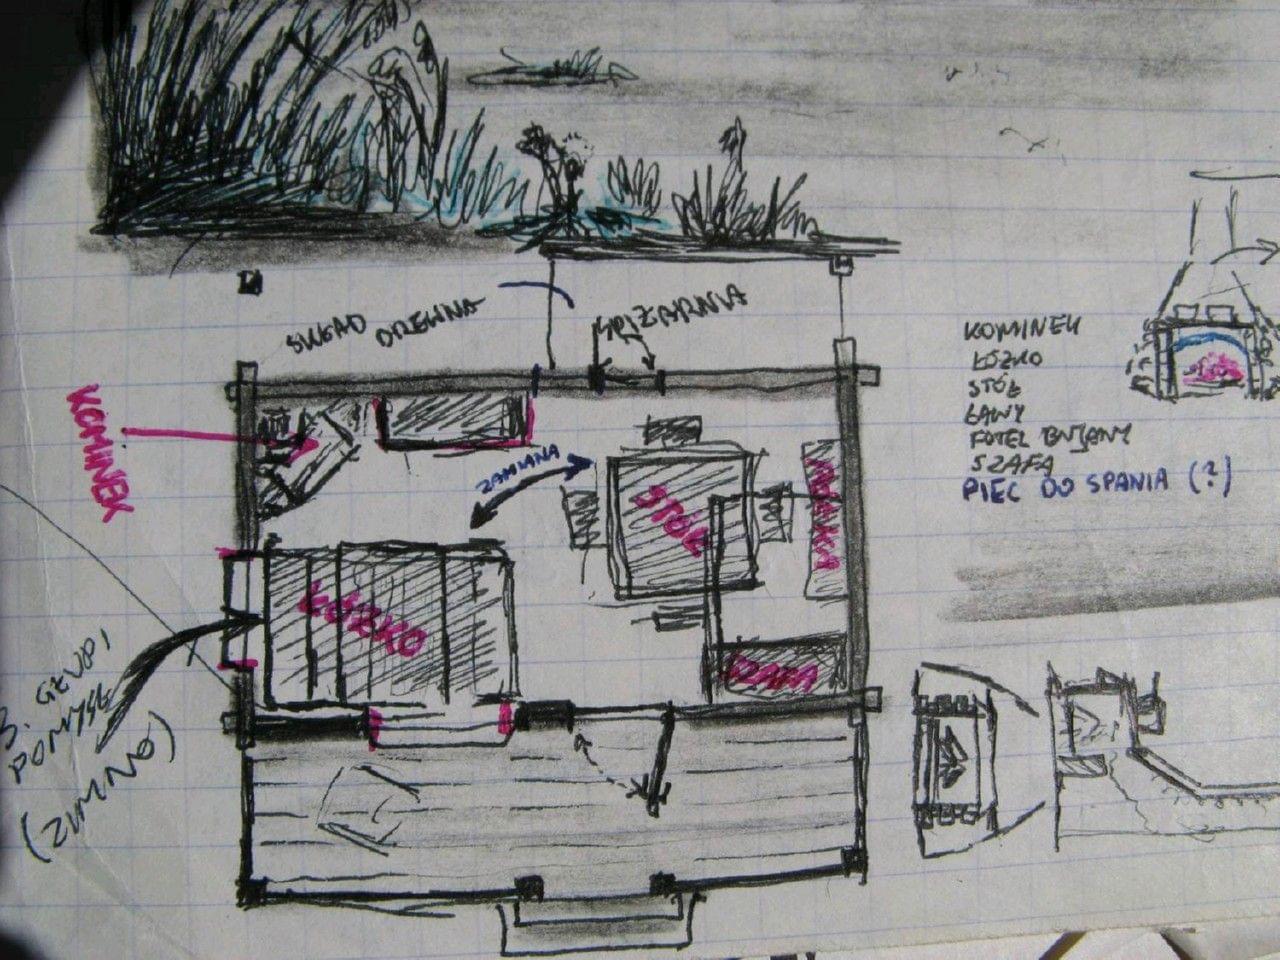 SKŁAD DREWNA
SPIŻARNIA
KOMINEK
ŁÓŻKO
STÓŁ
ŁAWY
FOTEL BUJANY
SZAFA
PIEC DO SPANIA (?)
KOMINEK
ZAMIANA
STÓŁ
ŁÓŻKO
SZAFA
B. GŁUPI
POMYSŁ
(ZIMNO)